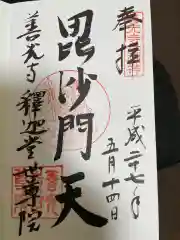 奉拝
平成二十七年
五月十四日
毘沙門天
善光寺 釋迦堂 世尊院